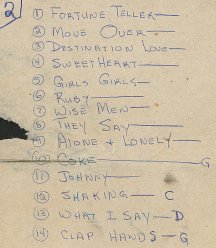 2
① FORTUNE TELLER—
② MOVE OVER—
③ DESTINATION LOVE—
④ SWEET HEART—
⑤ GIRLS GIRLS—
⑥ RUBY—
⑦ WISE MEN—
⑧ THEY SAY—
⑨ ALONE & LONELY—
⑩ COKE—G
⑪ JOHNNY—
⑫ SHAKING— C
⑬ WHAT I SAY—D
⑭ CLAP HANDS—G